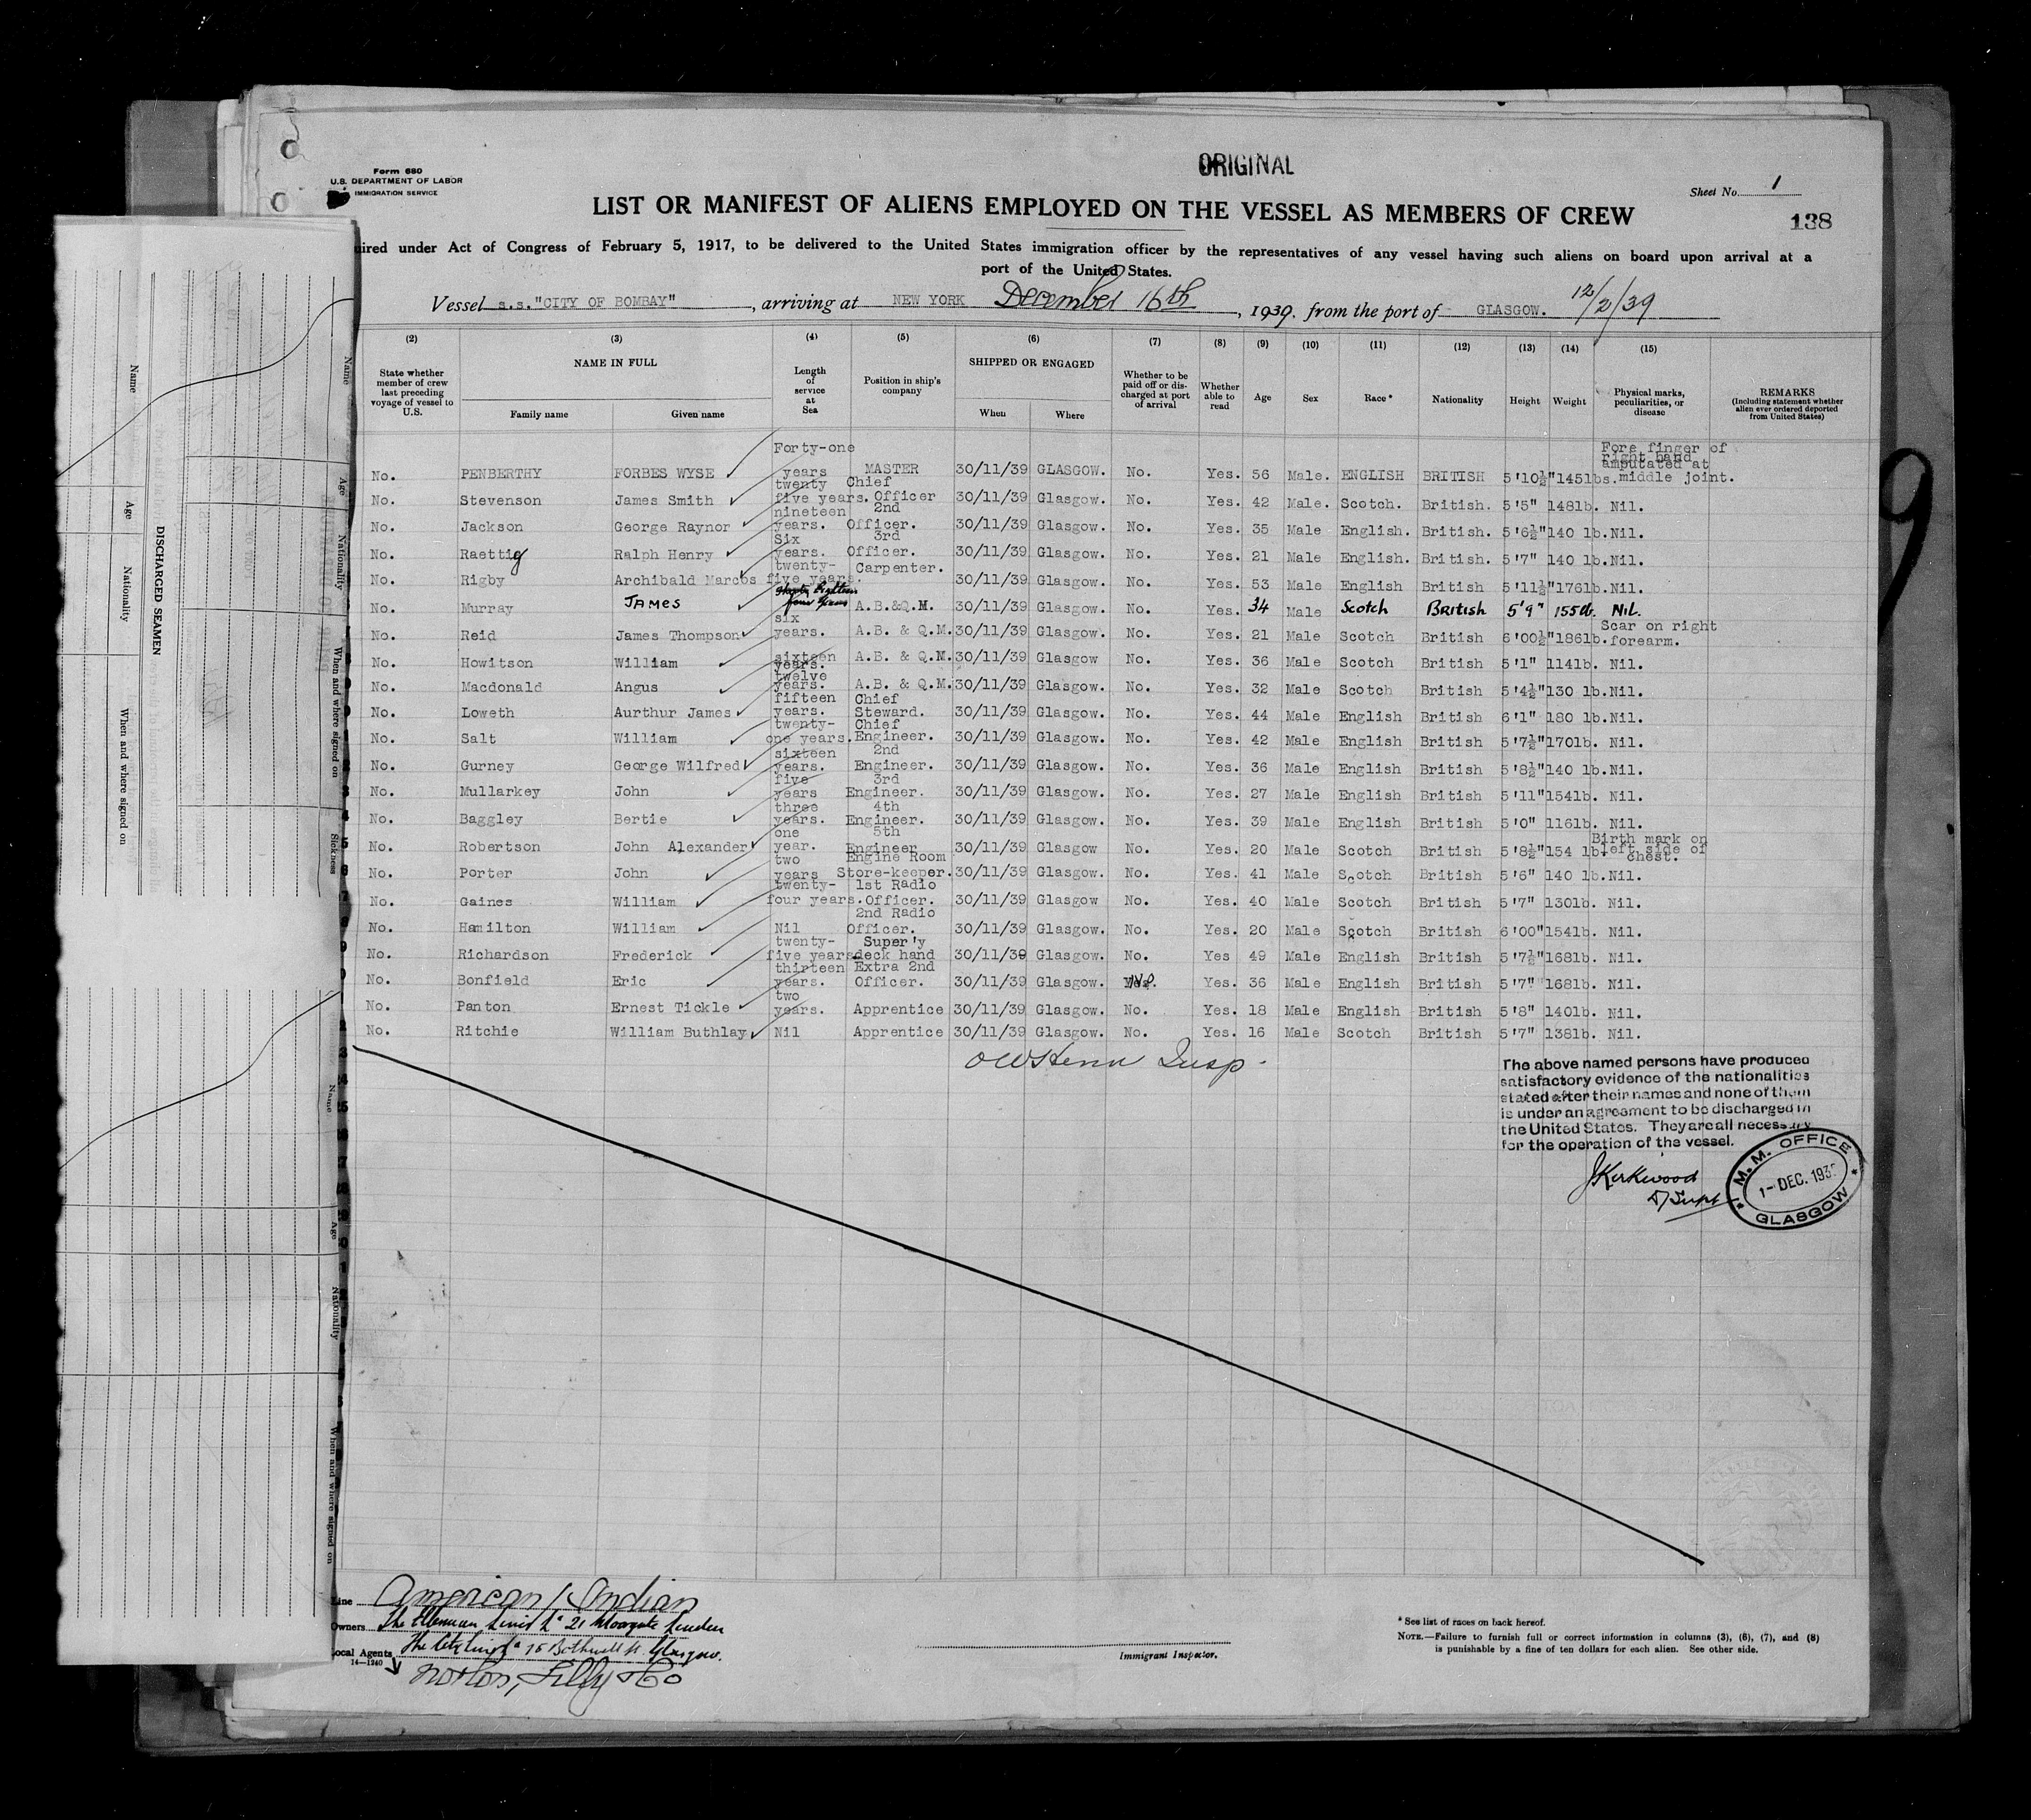 ORIGINAL
Form 680
U.S. DEPARTMENT OF LABOR
IMMIGRATION SERVICE
Sheet No. 1
LIST OR MANIFEST OF ALIENS EMPLOYED ON THE VESSEL AS MEMBERS OF CREW
138
uired under Act of Congress of February 5, 1917, to be delivered to the United States immigration officer by the representatives of any vessel having such aliens on board upon arrival at a
port of the United States.
Vessel s.s. "CITY OF BOMBAY", arriving at NEW YORK December 16th, 1939. from the port of GLASGOW. 12/2/39
(2) (3) (4) (5) (6) (7) (8) (9) (10) (11) (12) (13) (14) (15)
State whether member of crew last preceding voyage of vessel to U.S. NAME IN FULL Family name Given name Length of service at Sea Position in ship's company SHIPPED OR ENGAGED When Where Whether to be paid off or discharged at port of arrival Whether able to read Age Sex Race* Nationality Height Weight Physical marks, peculiarities, or disease REMARKS (Including statement whether alien ever ordered deported from United States)
No. PENBERTHY FORBES WYSE Forty-one years MASTER 30/11/39 GLASGOW. No. Yes. 56 Male. ENGLISH BRITISH 5'10½" 145lbs. Fore finger of right hand amputated at middle joint.
No. Stevenson James Smith twenty five years. Chief Officer 30/11/39 Glasgow. No. Yes. 42 Male. Scotch. British. 5'5" 148lb. Nil.
No. Jackson George Raynor nineteen years. 2nd Officer. 30/11/39 Glasgow. No. Yes. 35 Male English. British. 5'6½" 140 lb. Nil.
No. Raettig Ralph Henry Six years. 3rd Officer. 30/11/39 Glasgow. No. Yes. 21 Male English. British. 5'7" 140 lb. Nil.
No. Rigby Archibald Marcos twenty-five years. Carpenter. 30/11/39 Glasgow. No. Yes. 53 Male English British 5'11½" 176lb. Nil.
No. Murray JAMES Eighteen Years A.B.&Q.M. 30/11/39 Glasgow. No. Yes. 34 Male Scotch British 5'9" 155lb. Nil.
No. Reid James Thompson six years. A.B. & Q.M. 30/11/39 Glasgow. No. Yes. 21 Male Scotch British 6'00½" 186lb. Scar on right forearm.
No. Howitson William sixteen years. A.B. & Q.M. 30/11/39 Glasgow No. Yes. 36 Male Scotch British 5'1" 114lb. Nil.
No. Macdonald Angus twelve years. A.B. & Q.M. 30/11/39 Glasgow. No. Yes. 32 Male Scotch British 5'4½" 130 lb. Nil.
No. Loweth Aurthur James fifteen years. Chief Steward. 30/11/39 Glasgow. No. Yes. 44 Male English British 6'1" 180 lb. Nil.
No. Salt William twenty-one years. Chief Engineer. 30/11/39 Glasgow. No. Yes. 42 Male English British 5'7½" 170lb. Nil.
No. Gurney George Wilfred sixteen years. 2nd Engineer. 30/11/39 Glasgow. No. Yes. 36 Male English British 5'8½" 140 lb. Nil.
No. Mullarkey John five years 3rd Engineer. 30/11/39 Glasgow. No. Yes. 27 Male English British 5'11" 154lb. Nil.
No. Baggley Bertie three years. 4th Engineer. 30/11/39 Glasgow. No. Yes. 39 Male English British 5'0" 116lb. Nil.
No. Robertson John Alexander one year. 5th Engineer 30/11/39 Glasgow No. Yes. 20 Male Scotch British 5'8½" 154 lb. Birth mark on left side of chest.
No. Porter John two years Engine Room Store-keeper. 30/11/39 Glasgow. No. Yes. 41 Male Scotch British 5'6" 140 lb. Nil.
No. Gaines William twenty-four years. 1st Radio Officer. 30/11/39 Glasgow No. Yes. 40 Male Scotch British 5'7" 130lb. Nil.
No. Hamilton William Nil 2nd Radio Officer. 30/11/39 Glasgow. No. Yes. 20 Male Scotch British 6'00" 154lb. Nil.
No. Richardson Frederick twenty-five years Super'y deck hand 30/11/39 Glasgow. No. Yes 49 Male English British 5'7½" 168lb. Nil.
No. Bonfield Eric thirteen years. Extra 2nd Officer. 30/11/39 Glasgow. No. Yes. 36 Male English British 5'7" 168lb. Nil.
No. Panton Ernest Tickle two years. Apprentice 30/11/39 Glasgow. No. Yes. 18 Male English British 5'8" 140lb. Nil.
No. Ritchie William Buthlay Nil Apprentice 30/11/39 Glasgow. No. Yes. 16 Male Scotch British 5'7" 138lb. Nil.
Insp.
The above named persons have produced
satisfactory evidence of the nationalities
stated after their names and none of them
is under an agreement to be discharged in
the United States. They are all necessary
for the operation of the vessel.
JKirkwood
D/Supt
M. M. OFFICE
1 - DEC. 193
GLASGOW
9
Line American / Indian
Owners The Ellerman Lines Ld 21 Moorgate London
Local Agents The City Line Ld 75 Bothwell St. Glasgow.
14-1240
Norton, Lilly & Co
Immigrant Inspector.
* See list of races on back hereof.
NOTE.—Failure to furnish full or correct information in columns (3), (6), (7), and (8)
is punishable by a fine of ten dollars for each alien. See other side.
DISCHARGED SEAMEN
Name
Age
Nationality
When and where signed on
Name
Age
Nationality
When and where signed on
Sickness
Name
Age
Nationality
When and where signed on